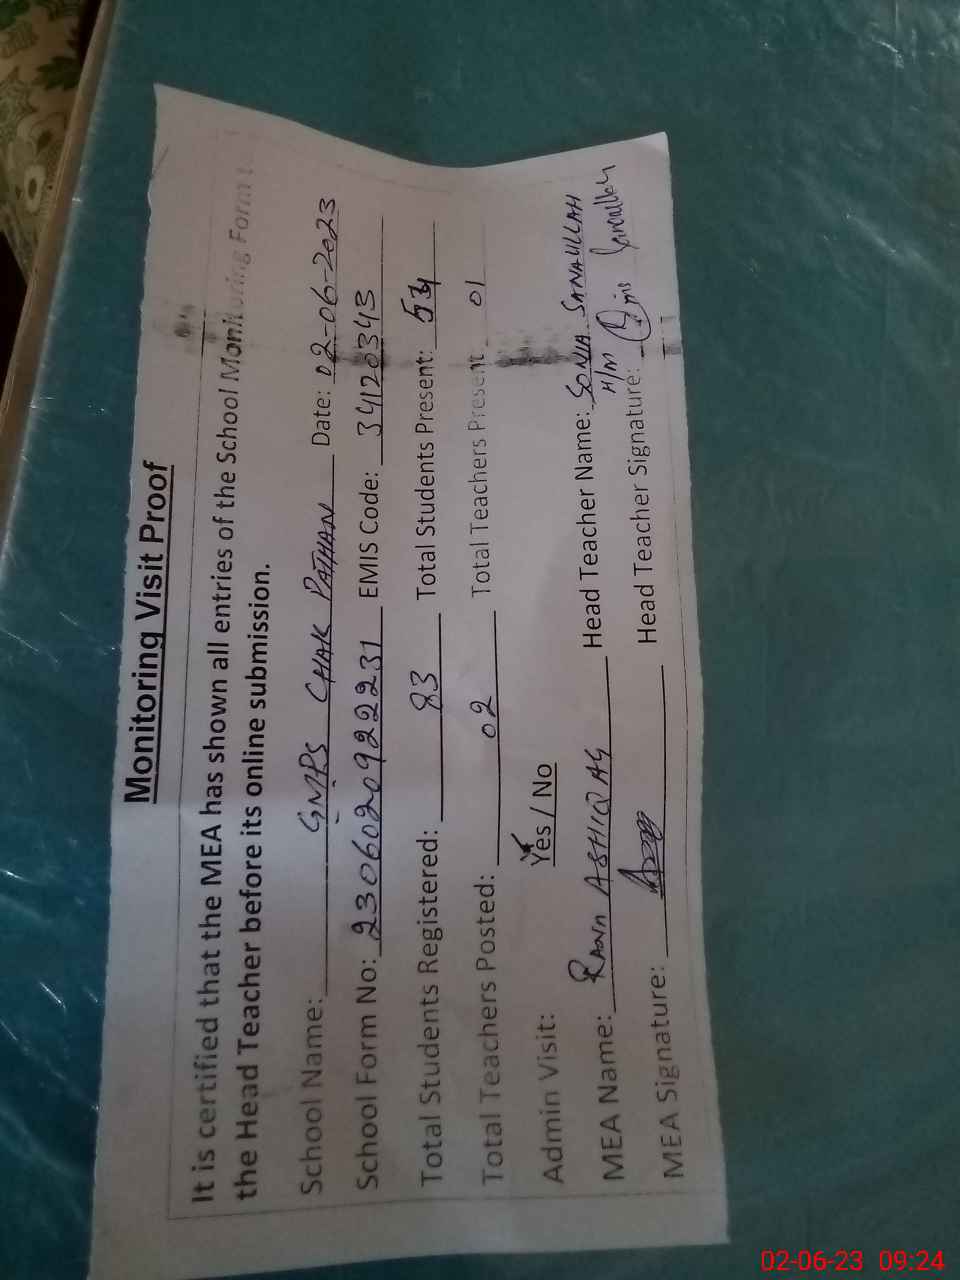 Monitoring Visit Proof
It is certified that the MEA has shown all entries of the School Monitoring Form to
the Head Teacher before its online submission.
School Name: GMPS CHAK PATHAN Date: 02-06-2023
School Form No: 23060209222231 EMIS Code: 34120343
Total Students Registered: 83 Total Students Present: 54
Total Teachers Posted: 02 Total Teachers Present 01
Admin Visit: Yes / No
MEA Name: RANA ASHIQ AG Head Teacher Name: SONIA SANAULLAH
H/M
MEA Signature: Head Teacher Signature: Sanaullah
02-06-23 09:24